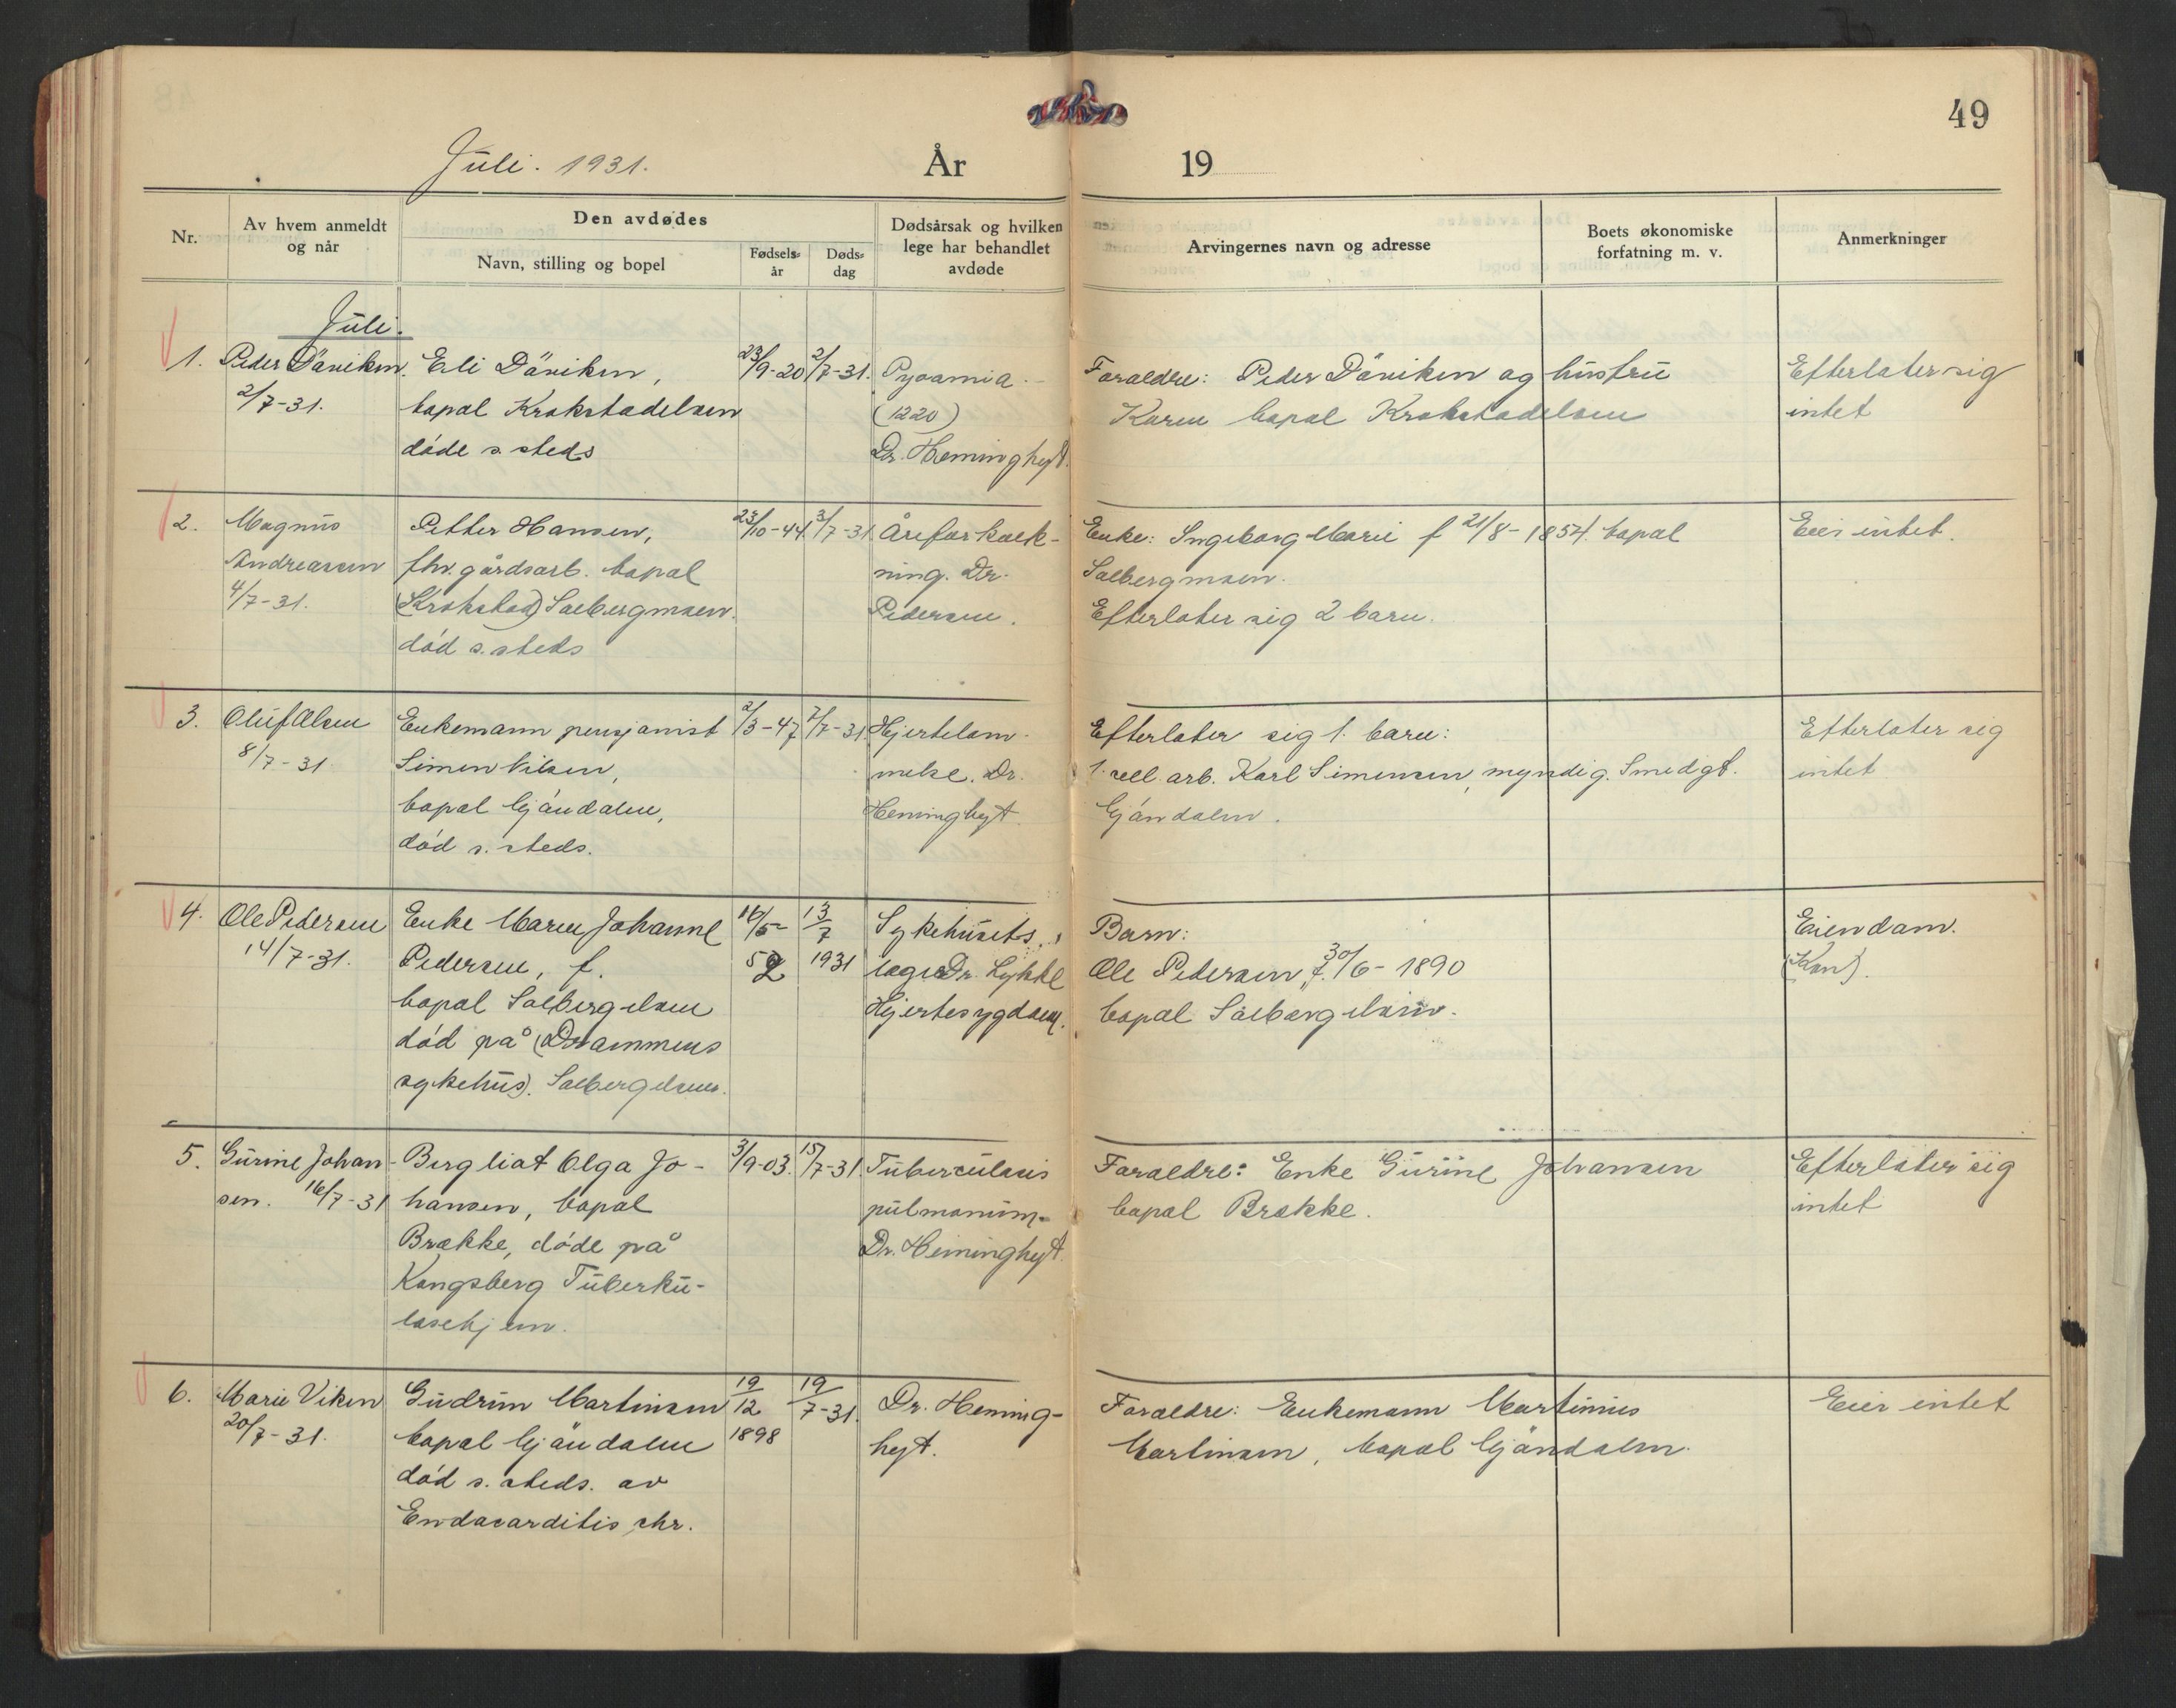 49
Juli. 1931.
År 19
Nr.
Av hvem anmeldt og når
Den avdødes
Navn, stilling og bopel
Fødsels-år
Døds-dag
Dødsårsak og hvilken lege har behandlet avdøde
Arvingernes navn og adresse
Boets økonomiske forfatning m. v.
Anmerkninger
Juli.
1. Peder Däniken.
2/7-31.
Eli Däniken,
bopel Krokstadelven
døde s. steds
23/9-20
2/7-31.
Pyoamia.
(1220)
Dr. Heminghyt.
Foraeldre: Peder Däniken og hustru
Karen bopel Krokstadelven
Efterlater sig
intet
2. Magnus
Andreasen
4/7-31.
Petter Hansen,
fhv. gårdsarb. bopel
(Krokstad) Solbergmoen.
død s. steds
23/10-44.
3/7-31.
Åreforkalk-
ning. Dr.
Pedersen.
Enke: Ingeborg Marie f 21/8-1854. bopel
Solbergmoen.
Efterlater sig 2 barn.
Eier intet.
3. Oluf Olsen
8/7-31.
Enkemann pensjonist
Simen Nilsen,
bopel Mjøndalen,
død s. steds.
2/3-47
7/7-31.
Hjertelam-
melse. Dr.
Heminghyt.
Efterlater sig 1. barn:
1. cell. arb. Karl Simensen, myndig. Smedgt.
Mjøndalen.
Efterlater sig
intet
4. Ole Pedersen
14/7-31.
Enke Maren Johanne
Pedersen, f.
bopel Solbergelven
død på (Drammens
sykehus). Solbergelven.
16/5-
52
13/7
1931
Sykehusets
lege Dr. Lykke
Hjertesygdom.
Barn:
Ole Pedersen, f. 30/6-1890
bopel Solbergelven.
Eiendom.
(Kon).
5. Gurine Johan-
sen. 16/7-31
Bergliot Olga Jo-
hansen, bopel
Brække, døde på
Kongsberg Tuberku-
losehjem.
3/9-03.
15/7-31.
Tuberculosis
pulmonum-
Dr. Heminghyt.
Foraeldre: Enke Gurine Johansen
bopel Brække.
Efterlater sig
intet
6. Marie Viken
20/7-31.
Gudrun Martinsen
bopel Mjøndalen
død s. steds. av
Endocarditis chr.
19/12
1898
19/7-31.
Dr. Heming-
hyt.
Foraeldre: Enkemann Martinius
Martinsen, bopel Mjøndalen.
Eier intet